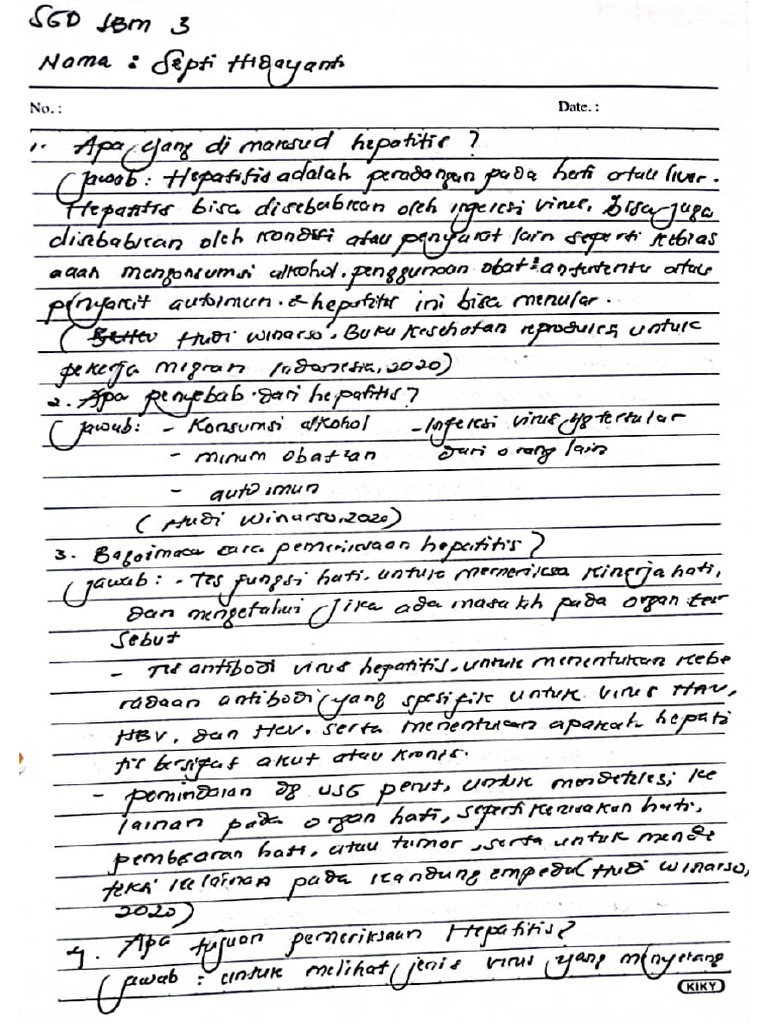 SGD SBM 3
Nama : Septi Hidayanti
No. :
Date. :
1. Apa yang di maksud hepatitis ?
Jawab : Hepatitis adalah peradangan pada hati atau liver.
Hepatitis bisa disebabkan oleh infeksi virus, bisa juga
disebabkan oleh kondisi atau penyakit lain seperti kebias
aaan mengonsumsi alkohol. penggunaan obat²an tertentu atau
penyakit autoimun. & hepatitis ini bisa menular.
( Hudi Winarso. Buku kesehatan reproduksi untuk
pekerja migran Indonesia, 2020)
2. Apa penyebab dari hepatitis ?
Jawab : - Konsumsi alkohol - Infeksi virus yg tertular
- minum obat²an dari orang lain
- autoimun
( Hudi Winarso, 2020)
3. Bagaimana cara pemeriksaan hepatitis ?
Jawab : - Tes fungsi hati. untuk memeriksa kinerja hati,
dan mengetahui jika ada masalah pada organ ter
sebut
- Tes antibodi virus hepatitis, untuk menentukan kebe
radaan antibodi yang spesifik untuk virus HAV,
HBV, dan HCV. serta menentukan apakah hepati
tis bersifat akut atau kronis.
- pemindaian dg USG perut, untuk mendeteksi ke
lainan pada organ hati, seperti kerusakan hati,
pembesaran hati, atau tumor, serta untuk mende
teksi kelainan pada kandung empedu (Hudi Winarso,
2020)
4. Apa tujuan pemeriksaan Hepatitis ?
Jawab : untuk melihat jenis virus yang menyerang
KIKY